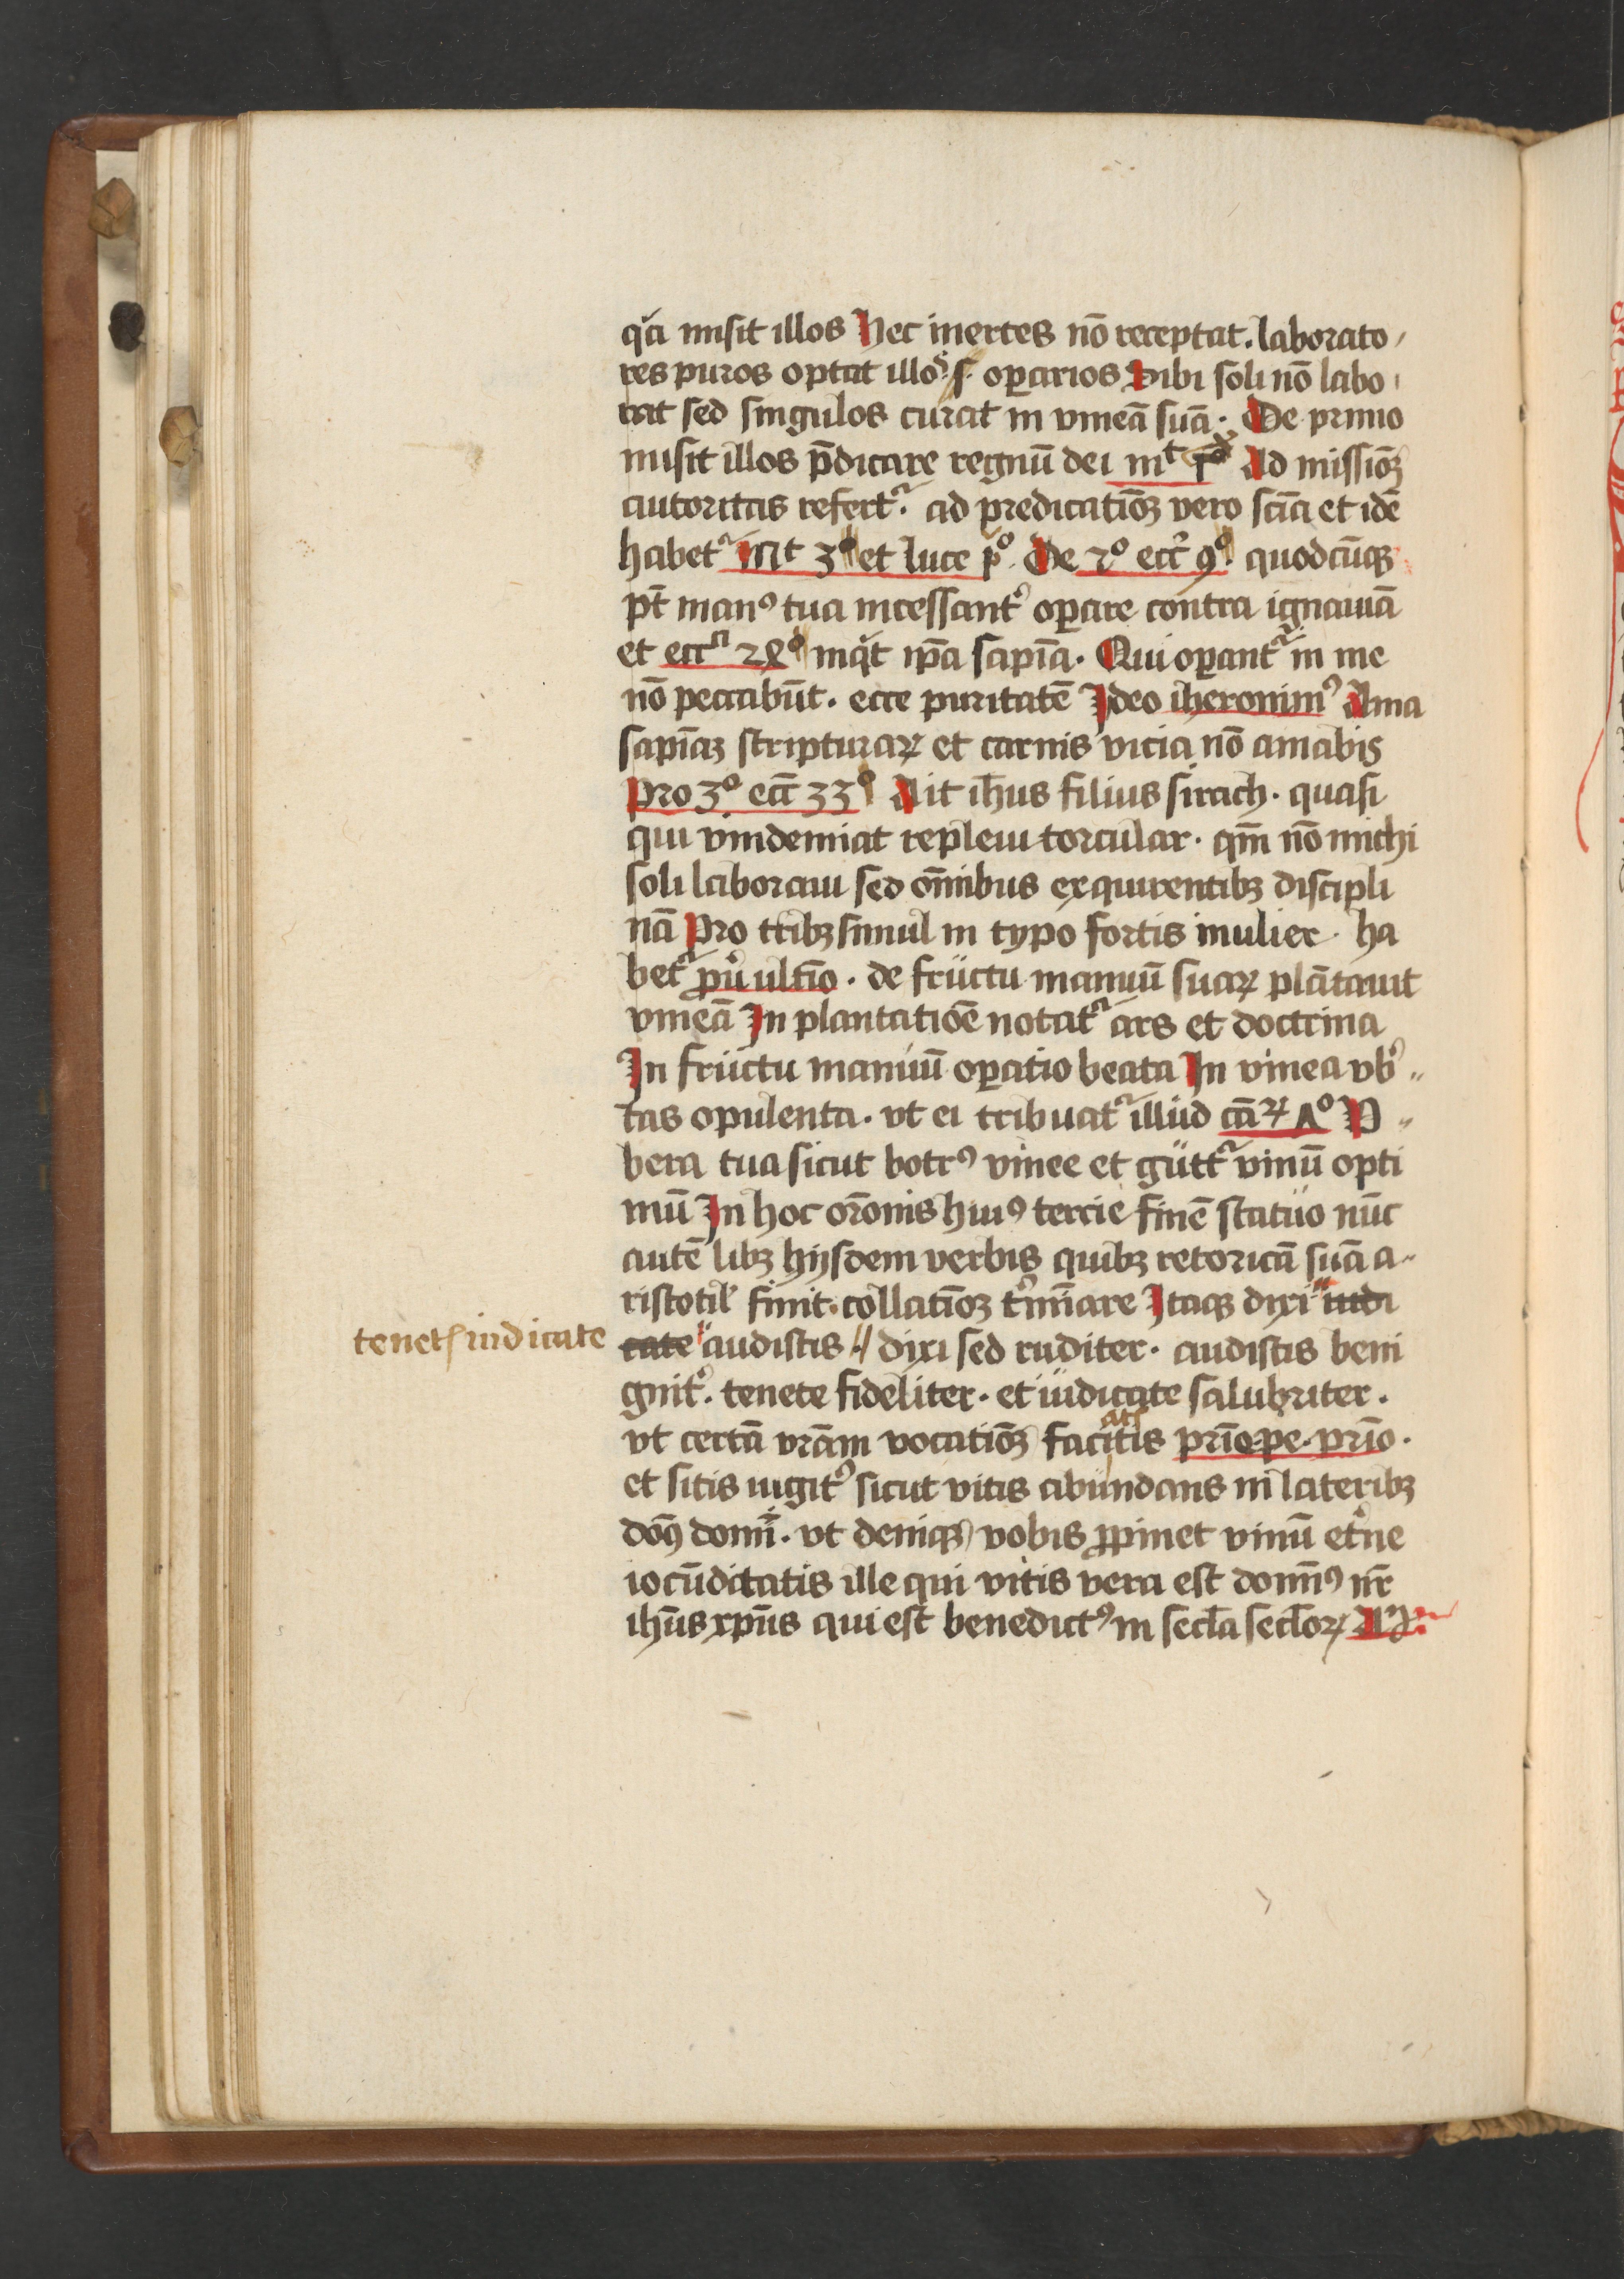 qͣa misit illos Nec inertes nō receptat. laborato
res puros optat illos .s. oꝑarios Sibi soli nō labo
rat sed singulos curat in vineā suā. De primo
misit illos p̄dicare regnū dei mͭ Ad missiōꝫ
autoritas refertᷣ. ad predicatiōꝫ vero scīa et idē
habetᷣ Mt 3º et luce pº. De 2º eccᷣ 9º. quodcūqꝫ
pt̄ manꝰ tua incessantᷣ oꝑare contra ignauiā
et eccⁿ 24º inqͥt ip̄a sapīa. Qui oꝑantᷣ in me
nō peccabūt. ecce puritatē Ideo iheronimꝰ Ama
sapīaꝫ scripturaꝝ et carnis vicia nō amabis
Pro 3º ecc̄ 33º Ait ih̄us filius sirach. quasi
qui vindemiat repleui torcular. qm̄ nō michi
soli laboraui sed om̄ibus exquirentibꝫ discipli
nā Pro tribꝫ simul in typo fortis mulier ha
betᷣ ꝓuͥ ultīo. de fructu manuū suaꝝ plātauit
vineā In plantatiōe notatᷣ ars et doctrina
In fructu manuū oꝑatio beata In vinea vbᷣ
tas opulenta. vt ei tribuatᷣ illud cāꝝ 7º V
bera tua sicut botrꝰ vinee et guttᷣ vinū opti
mū In hoc or̄onis huiꝰ tercie finē statuo nūc
autē libꝫ hijsdem verbis quibꝫ retoricā suā a
ristotilꝭ finit. collatiōꝫ tᷣmīare Itaqꝫ dixi iudi
tenetꝭ iudicate cate audistis // dixi sed ruditer. audistis beni
gnitᷣ. tenete fideliter. et iudicate salubriter.
vt certā vrām vocatiōꝫ facitis atꝭ prīo pe. prīo.
et sitis iugitᷣ sicut vitis abundans in lateribꝫ
domꝰ domī. vt deniqꝫ vobis ꝓpinet vinū etᷣne
iocūditatis ille qui vitis vera est domīꝰ nr̄
ih̄us xp̄us qui est benedictꝰ in secl̄a secl̄oꝝ